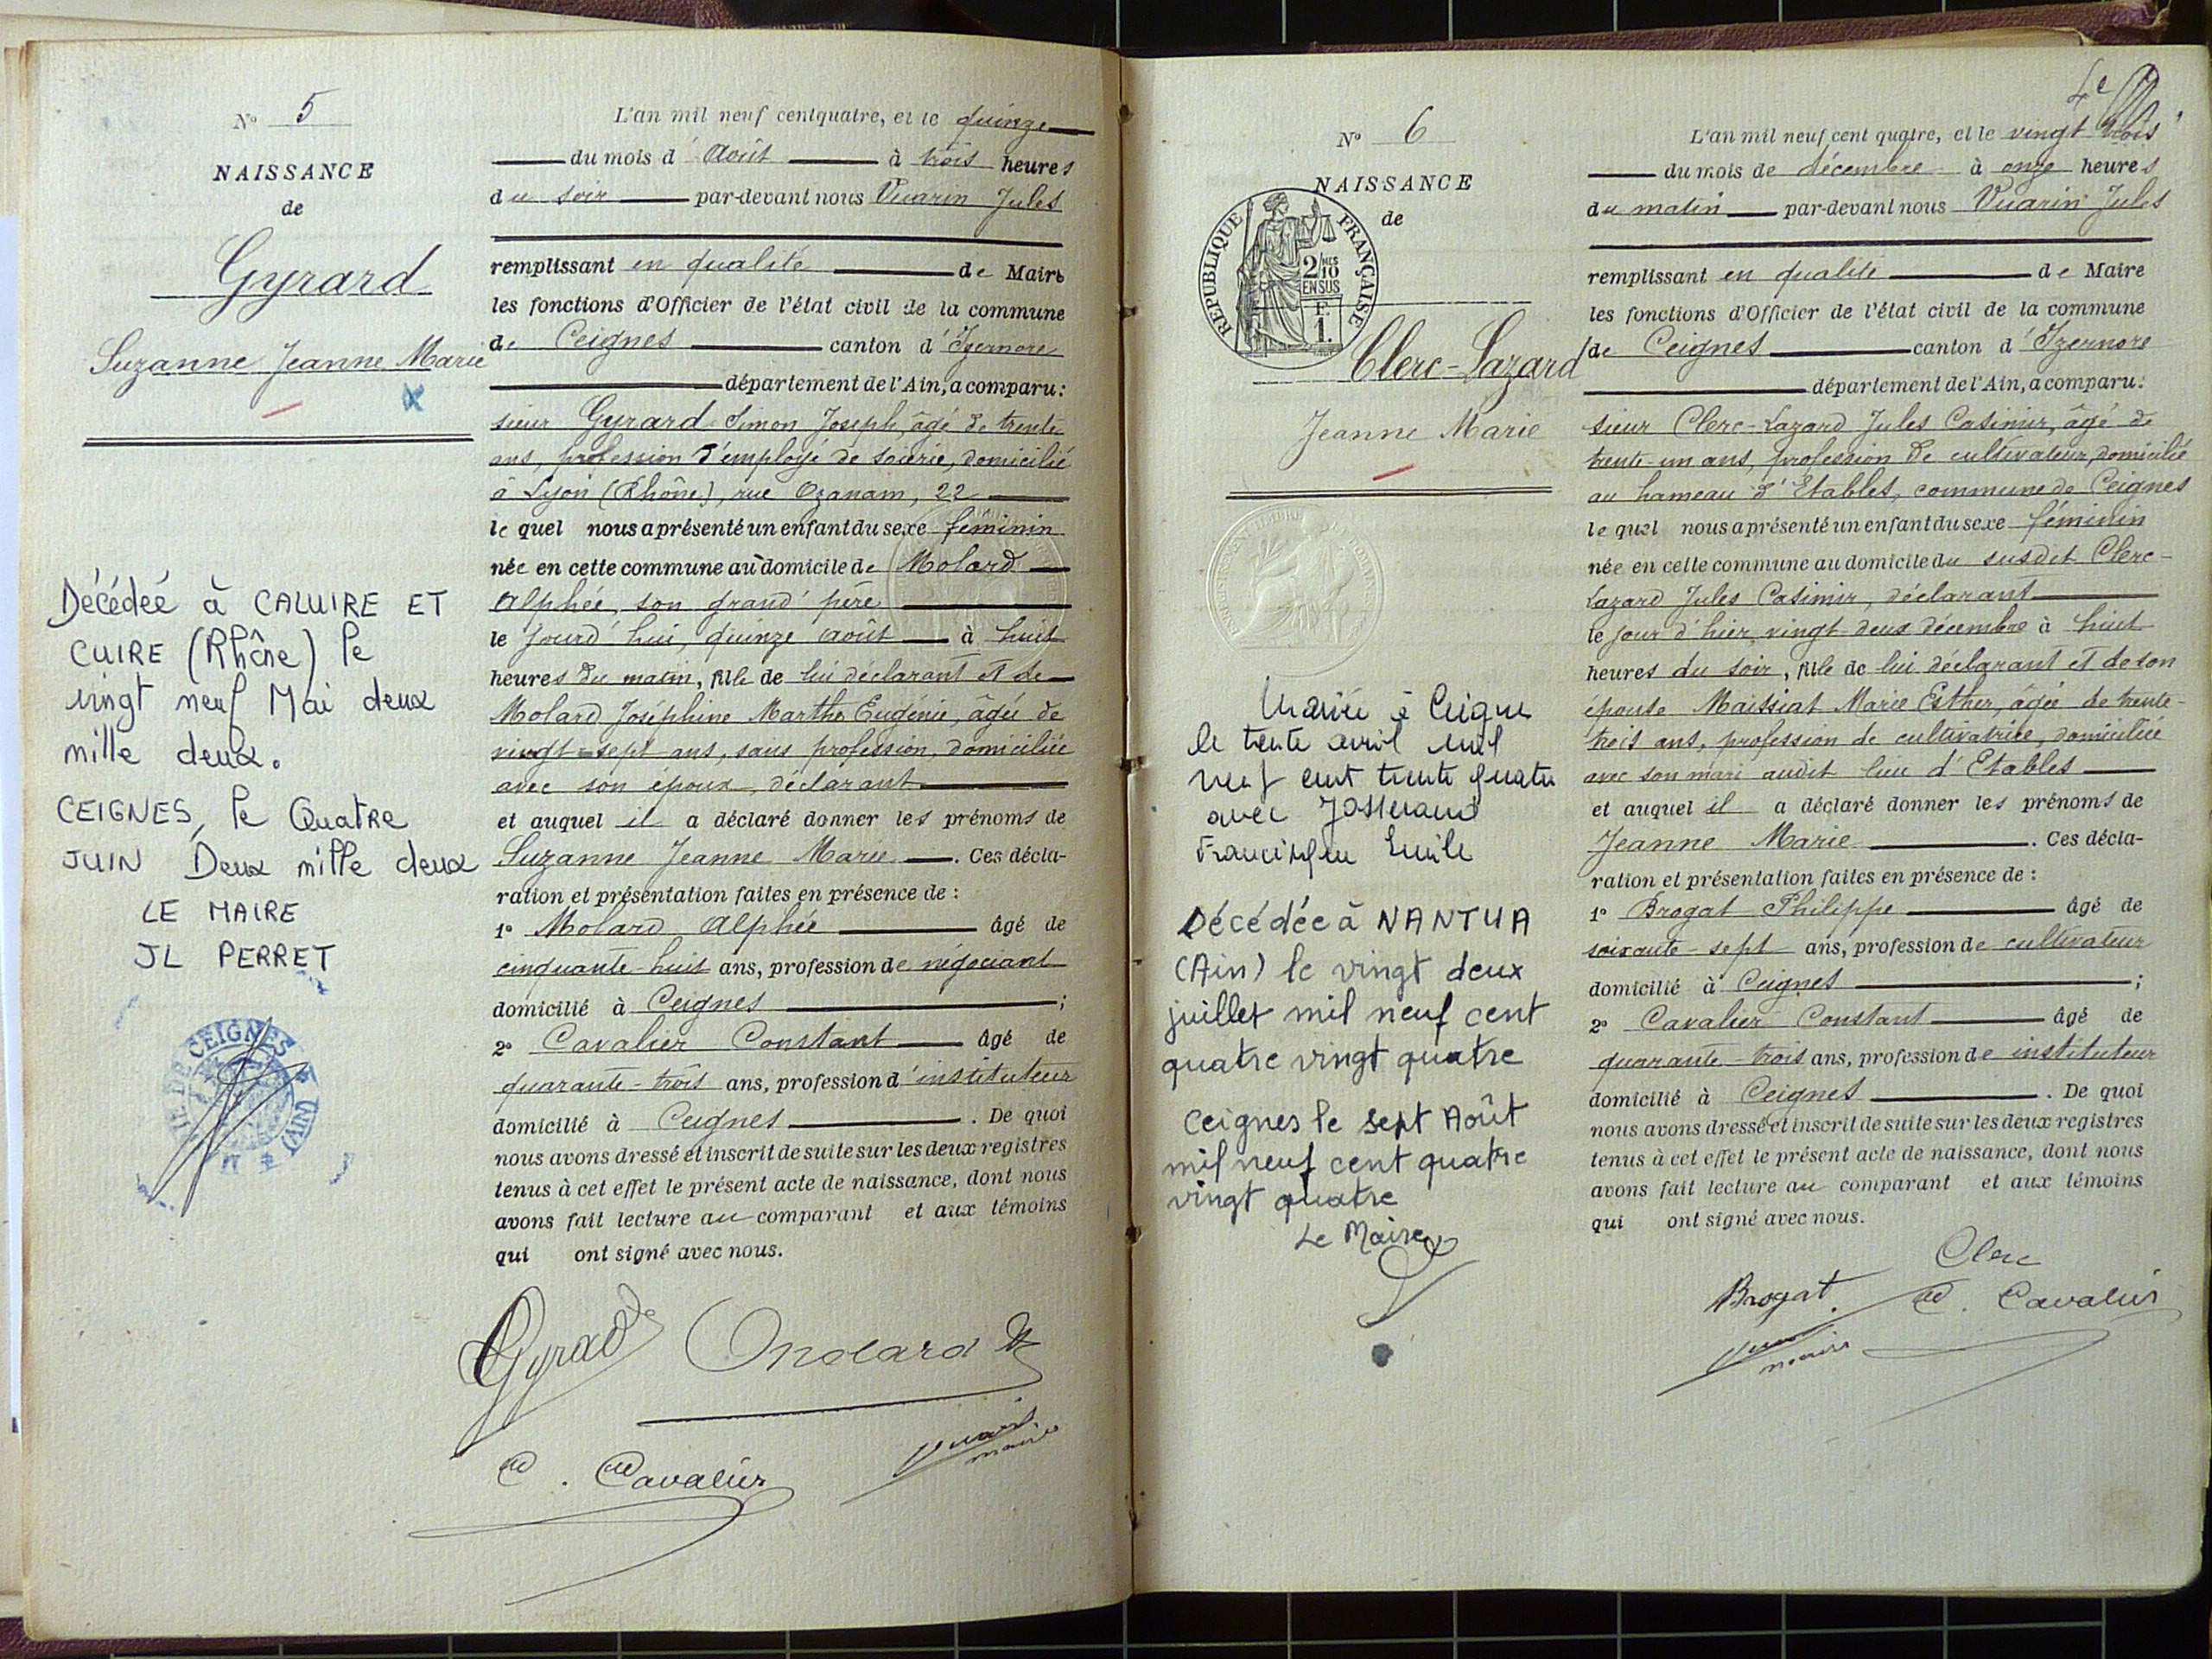 N° 5
NAISSANCE
de
Gyrard
Suzanne Jeanne Marie
Décédée à CALUIRE ET
CUIRE (Rhône) le
vingt neuf Mai deux
mille deux.
CEIGNES, le Quatre
JUIN Deux mille deux
LE MAIRE
JL PERRET
CEIGNES
L'an mil neuf cent quatre, et le quinze
du mois d'Août à trois heures
du soir par-devant nous Vuarin Jules
remplissant en qualité de Maire
les fonctions d'Officier de l'état civil de la commune
de Ceignes canton d'Izernore
département de l'Ain, a comparu:
sieur Gyrard Simon Joseph, âgé de trente
ans, profession d'employé de soierie, domicilié
à Lyon (Rhône), rue Ozanam, 22
le quel nous a présenté un enfant du sexe féminin
née en cette commune au domicile de Molard
Alphée, son grand'père
le jourd'hui, quinze août à huit
heures du matin, fille de lui déclarant et de
Molard Joséphine Marthe Eugénie, âgée de
vingt-sept ans, sans profession, domiciliée
avec son époux, déclarant
et auquel il a déclaré donner les prénoms de
Suzanne Jeanne Marie. Ces décla-
ration et présentation faites en présence de :
1° Molard Alphée âgé de
cinquante-huit ans, profession de négociant
domicilié à Ceignes ;
2° Cavalier Constant âgé de
quarante-trois ans, profession d'instituteur
domicilié à Ceignes. De quoi
nous avons dressé et inscrit de suite sur les deux registres
tenus à cet effet le présent acte de naissance, dont nous
avons fait lecture au comparant et aux témoins
qui ont signé avec nous.
Gyrard Molard
C. Cavalier Vuarin
maire
4e
N° 6
NAISSANCE
de
RÉPUBLIQUE FRANÇAISE
2/10 MES
EN SUS
F.
1.
Clerc-Lazard
Jeanne Marie
Mariée à Ceignes
le trente avril mil
neuf cent trente quatre
avec Josserand
Francisque Emile
Décédée à NANTUA
(Ain) le vingt deux
juillet mil neuf cent
quatre vingt quatre
Ceignes le sept Août
mil neuf cent quatre
vingt quatre
Le Maire
L'an mil neuf cent quatre, et le vingt trois
du mois de décembre à onze heures
du matin par-devant nous Vuarin Jules
remplissant en qualité de Maire
les fonctions d'Officier de l'état civil de la commune
de Ceignes canton d'Izernore
département de l'Ain, a comparu:
sieur Clerc-Lazard Jules Casimir, âgé de
trente-un ans, profession de cultivateur, domicilié
au hameau d'Etables, commune de Ceignes
le quel nous a présenté un enfant du sexe féminin
née en cette commune au domicile du susdit Clerc-
Lazard Jules Casimir, déclarant
le jour d'hier vingt-deux décembre à huit
heures du soir, fille de lui déclarant et de son
épouse Maissiat Marie Esther, âgée de trente-
trois ans, profession de cultivatrice, domiciliée
avec son mari audit lieu d'Etables
et auquel il a déclaré donner les prénoms de
Jeanne Marie. Ces décla-
ration et présentation faites en présence de :
1° Brogat Philippe âgé de
soixante-sept ans, profession de cultivateur
domicilié à Ceignes ;
2° Cavalier Constant âgé de
quarante-trois ans, profession de instituteur
domicilié à Ceignes. De quoi
nous avons dressé et inscrit de suite sur les deux registres
tenus à cet effet le présent acte de naissance, dont nous
avons fait lecture au comparant et aux témoins
qui ont signé avec nous.
Clerc
Brogat. C. Cavalier
Vuarin
maire